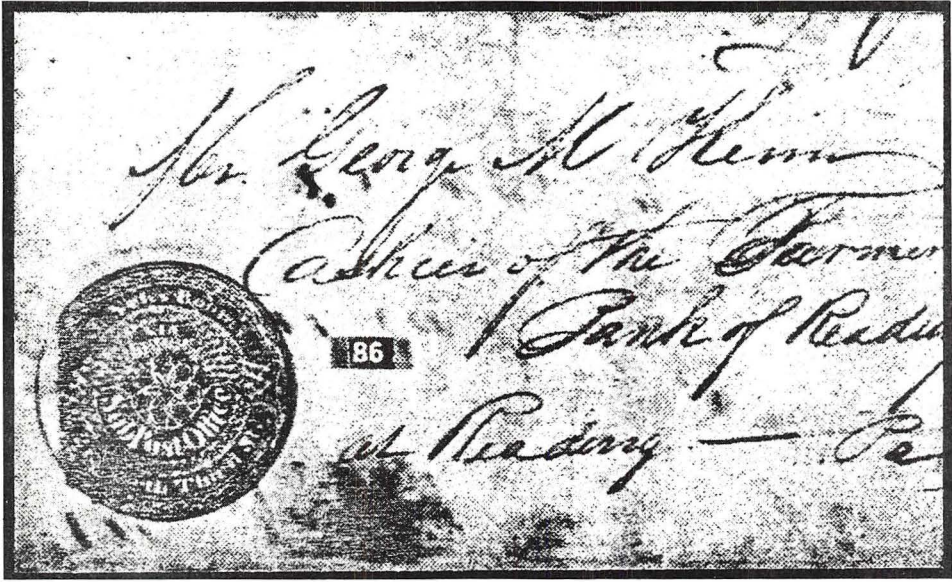 Mr. George M Keim
Cashier of the Farmer
Bank of Readin
at Reading — Pa
86
Post Office